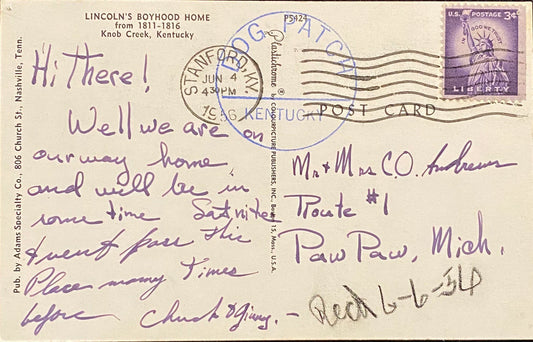 LINCOLN'S BOYHOOD HOME
from 1811-1816
Knob Creek, Kentucky
P5424
Hi There!
Well we are on
our way home
and will be in
some time Sat nite
went pass this
Place many Times
before Chuck & Ginny.-
Pub. by Adams Specialty Co., 806 Church St., Nashville, Tenn.
Plastichrome ® by COLOURPICTURE PUBLISHERS, INC., Boston 15, Mass., U.S.A.
DOG PATCH
KENTUCKY
STANFORD, KY.
JUN 4
430PM
1956
U.S. POSTAGE 3¢
IN GOD WE TRUST
LIBERTY
POST CARD
Mr + Mrs C.O. Andrews
Route #1
Paw Paw, Mich.
Recd 6-6-56